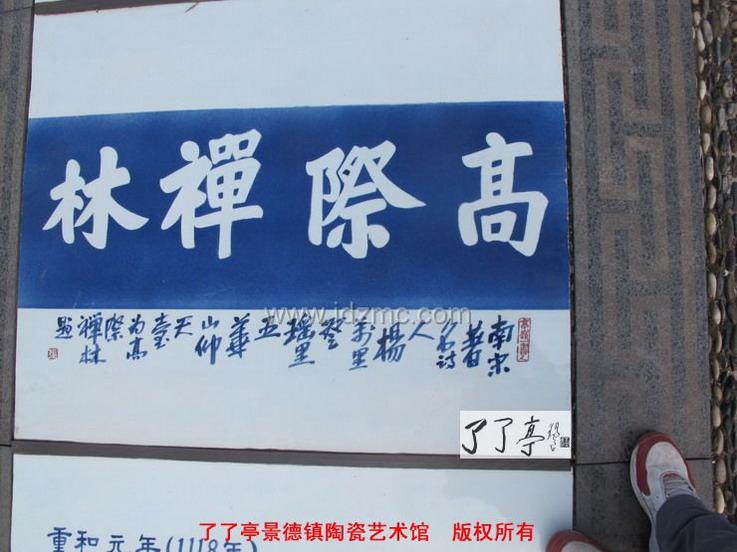 髙際禪林
南宋著名詩人楊萬里登瑶里五華山仰天臺为高際禪林題
www.jdzmc.com
了了亭
重和元年(1118年)
了了亭景德镇陶瓷艺术馆 版权所有